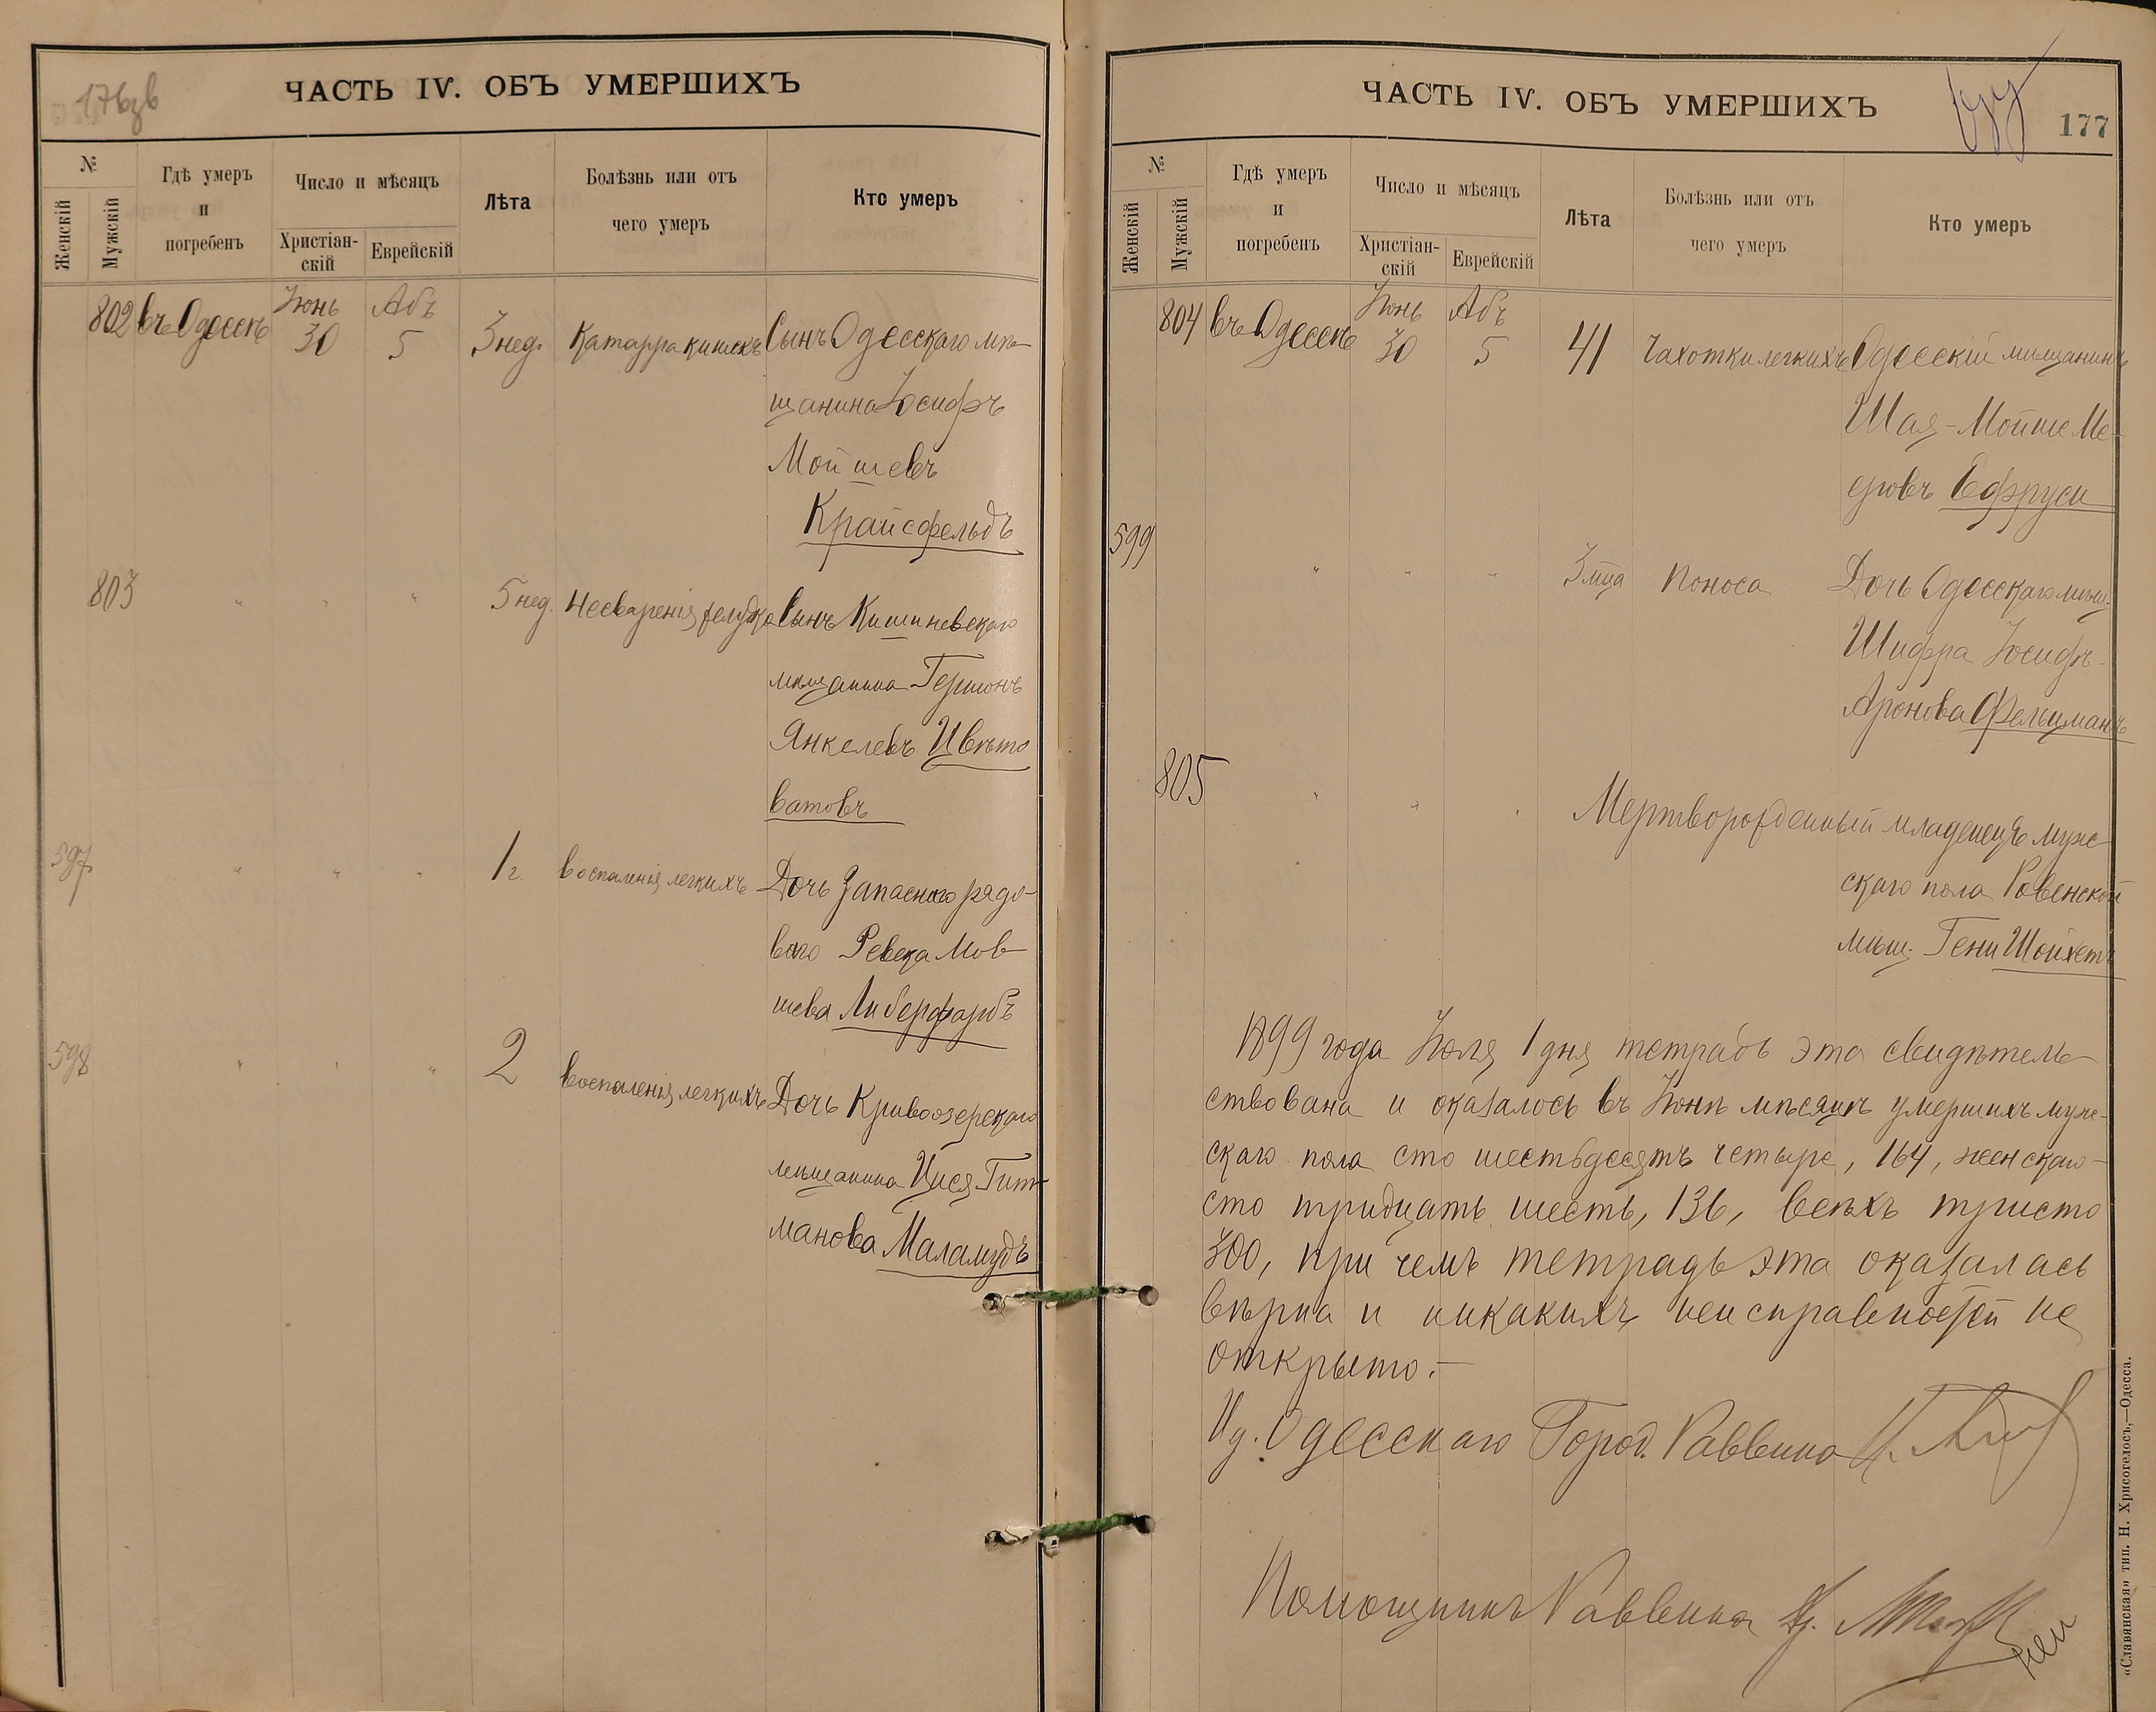 ЧАСТЬ IV. ОБЪ УМЕРШИХЪ
№
Женскій
Мужскій
Гдѣ умеръ
и
погребенъ
Число и мѣсяцъ
Христіан-
скій
Еврейскій
Лѣта
Болѣзнь или отъ
чего умеръ
Кто умеръ
802 въ Одессѣ Іюнь 30 Абъ 5 3 нед. Катарра кишекъ Сынъ Одесскаго мѣ-
щанина Іосифъ
Мойшевъ
Крайсфельдъ
803 " " " 5 нед. Несваренія желудка Сынъ Кишиневскаго
мѣщанина Гершонъ
Янкелевъ Цвѣто
ватовъ
597 " " " 1 г. воспаленія легкихъ Дочь Запасного рядо-
вого Ревека Мов-
шева Либерфарбъ
598 " " " 2 воспаленія легкихъ Дочь Кривоозерскаго
мѣщанина Цися Гит-
манова Маламудъ
ЧАСТЬ IV. ОБЪ УМЕРШИХЪ
177
№
Женскій
Мужскій
Гдѣ умеръ
и
погребенъ
Число и мѣсяцъ
Христіан-
скій
Еврейскій
Лѣта
Болѣзнь или отъ
чего умеръ
Кто умеръ
804 въ Одессѣ Іюнь 30 Абъ 5 41 Чахотки легкихъ Одесскій мѣщанинъ
Шая-Мойше Ме-
еровъ Ефруси
599 " " " 3 мца Поноса Дочь Одесскаго мѣщ.
Шифра Іосифъ-
Аронова Фельцманъ
805 " " " Мертворожденный младенецъ муже-
скаго пола Ровенской
мѣщ. Гени Шойхетъ
1899 года Іюля 1 дня тетрадь эта свидѣтель-
ствована и оказалось въ Іюнѣ мѣсяцѣ умершихъ муже-
скаго пола сто шестьдесятъ четыре, 164, женскаго-
сто тридцать шесть, 136, всѣхъ триста
300, при чемъ тетрадь эта оказалась
вѣрна и никакихъ неисправностей не
открыто.-
И д. Одесскаго Город. Раввина
Помощникъ Раввина
«Славянская» тип. Н. Хрисогелосъ,—Одесса.